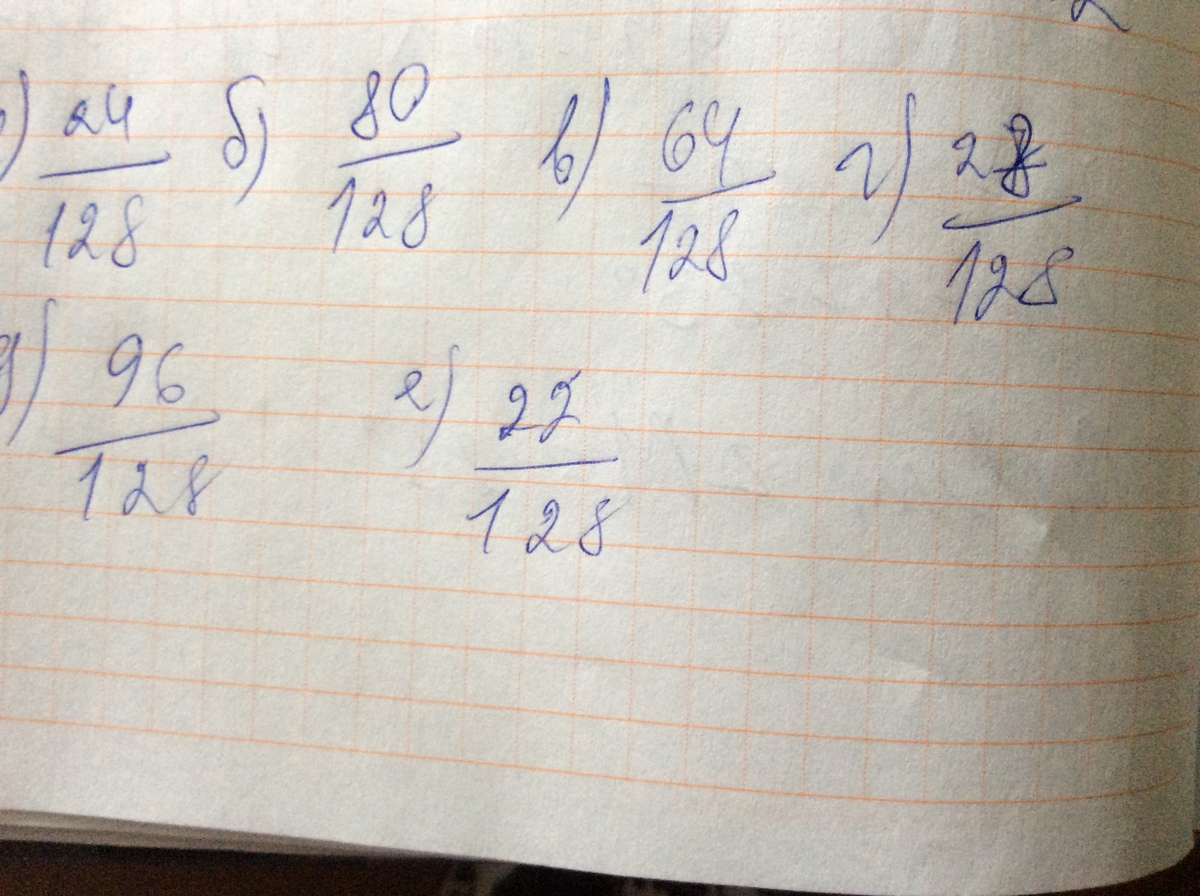 ) 24/128 б) 80/128 в) 64/128 г) 28/128
д) 96/128 е) 22/128